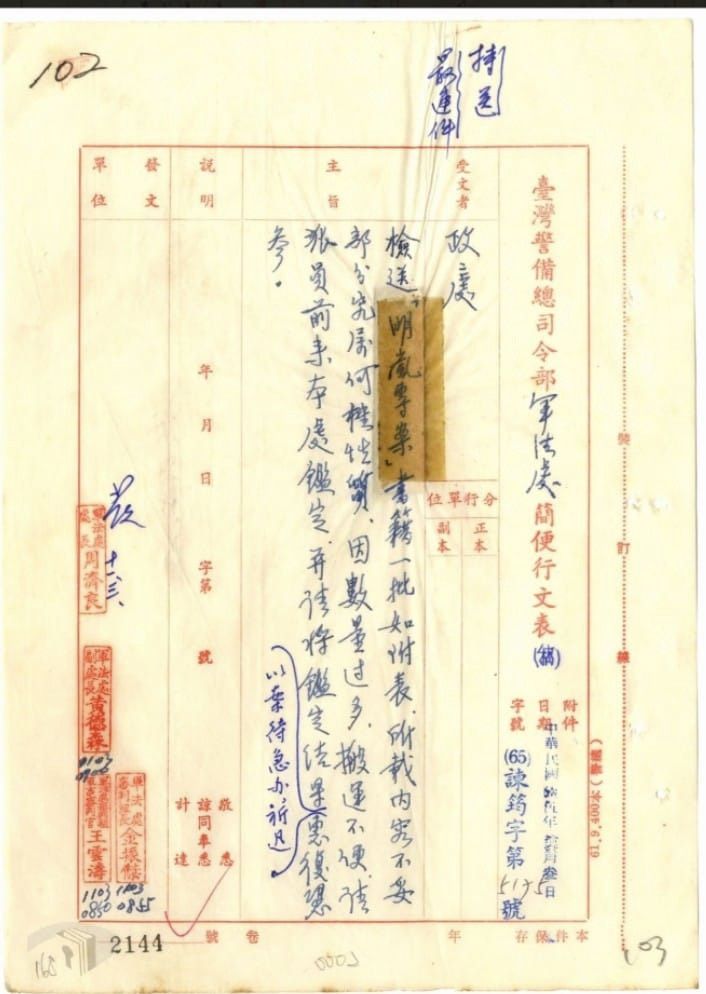 102
持送
最速件
臺灣警備總司令部軍法處簡便行文表(稿)
附件
日期 中華民國陸伍年 月叁日
字號 (65)諫筠字第5175號
受文者
政二處
分行單位
正本
副本
主旨
檢送「明 專案」書籍一批如附表,所載內容不妥
部分究屬何種性質、因數量过多,搬運不便,请
派員前来本處鑑定,并请将鑑定结果惠復
參。
以案待急办,祈迅
說明
發文單位
年 月 日 字第 號
敬悉
諒同奉悉
計達
十一、三、
軍法處處長 周濟良
軍法處副處長 黃德森
1103
0900
軍法處 金振
王雲濤
1103
0850
1103
0855
2144
號
卷
年
本件保存
裝
訂
線
61.9.400本
0003
103
165